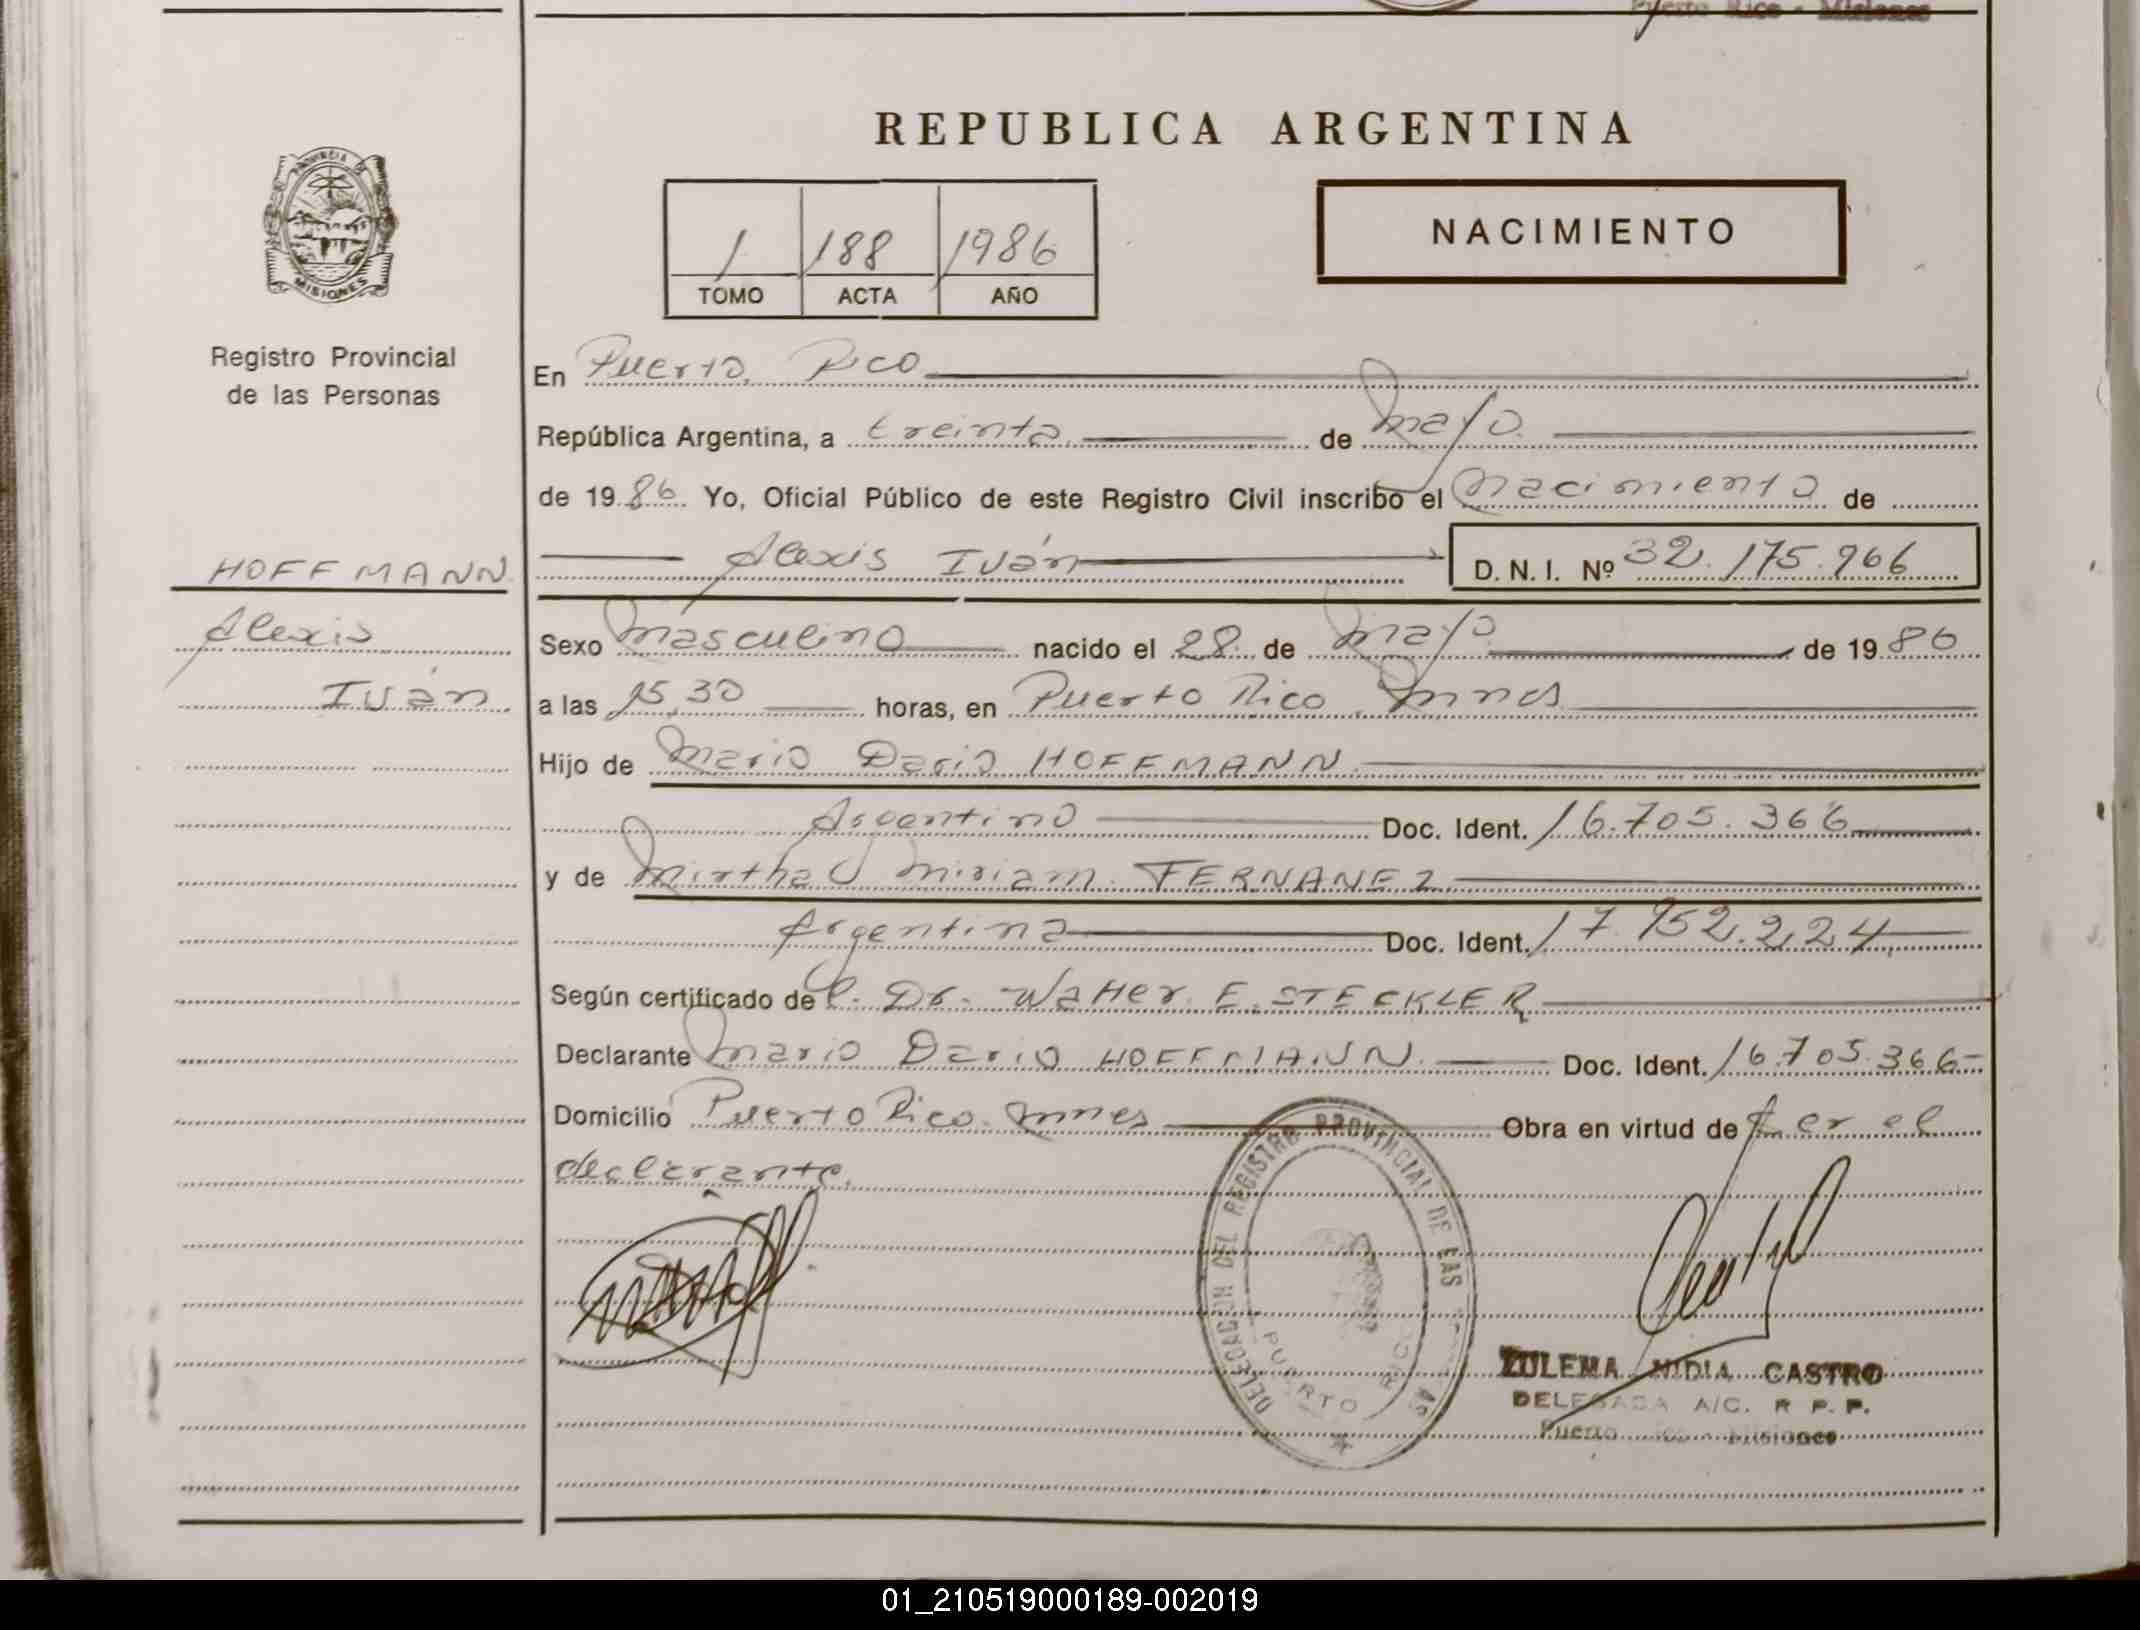 Puerto Rico - Misiones
REPUBLICA ARGENTINA
PROVINCIA DE
MISIONES
1 188 1986
TOMO ACTA AÑO
NACIMIENTO
Registro Provincial
de las Personas
En Puerto Rico
República Argentina, a treinta de mayo
de 1986 Yo, Oficial Público de este Registro Civil inscribo el Nacimiento de
Alexis Iván D. N. I. Nº 32.175.966
HOFFMANN
Alexis
Iván
Sexo masculino nacido el 28 de mayo de 1986
a las 15,30 horas, en Puerto Rico Mnes
Hijo de Mario Dario HOFFMANN
Argentino Doc. Ident. 16.705.366
y de Mirtha Miriam FERNANEZ
Argentina Doc. Ident. 17.952.224
Según certificado de l. Dr. Walter E. STECKLER
Declarante Mario Dario HOFFMANN Doc. Ident. 16.705.366
Domicilio Puerto Rico Mnes Obra en virtud de ser el
declarante.
DELEGACION DEL REGISTRO PROVINCIAL DE LAS
PUERTO RICO
ZULEMA NIDIA CASTRO
DELEGADA A/C. R P. P.
Puerto Rico - Misiones
01_210519000189-002019